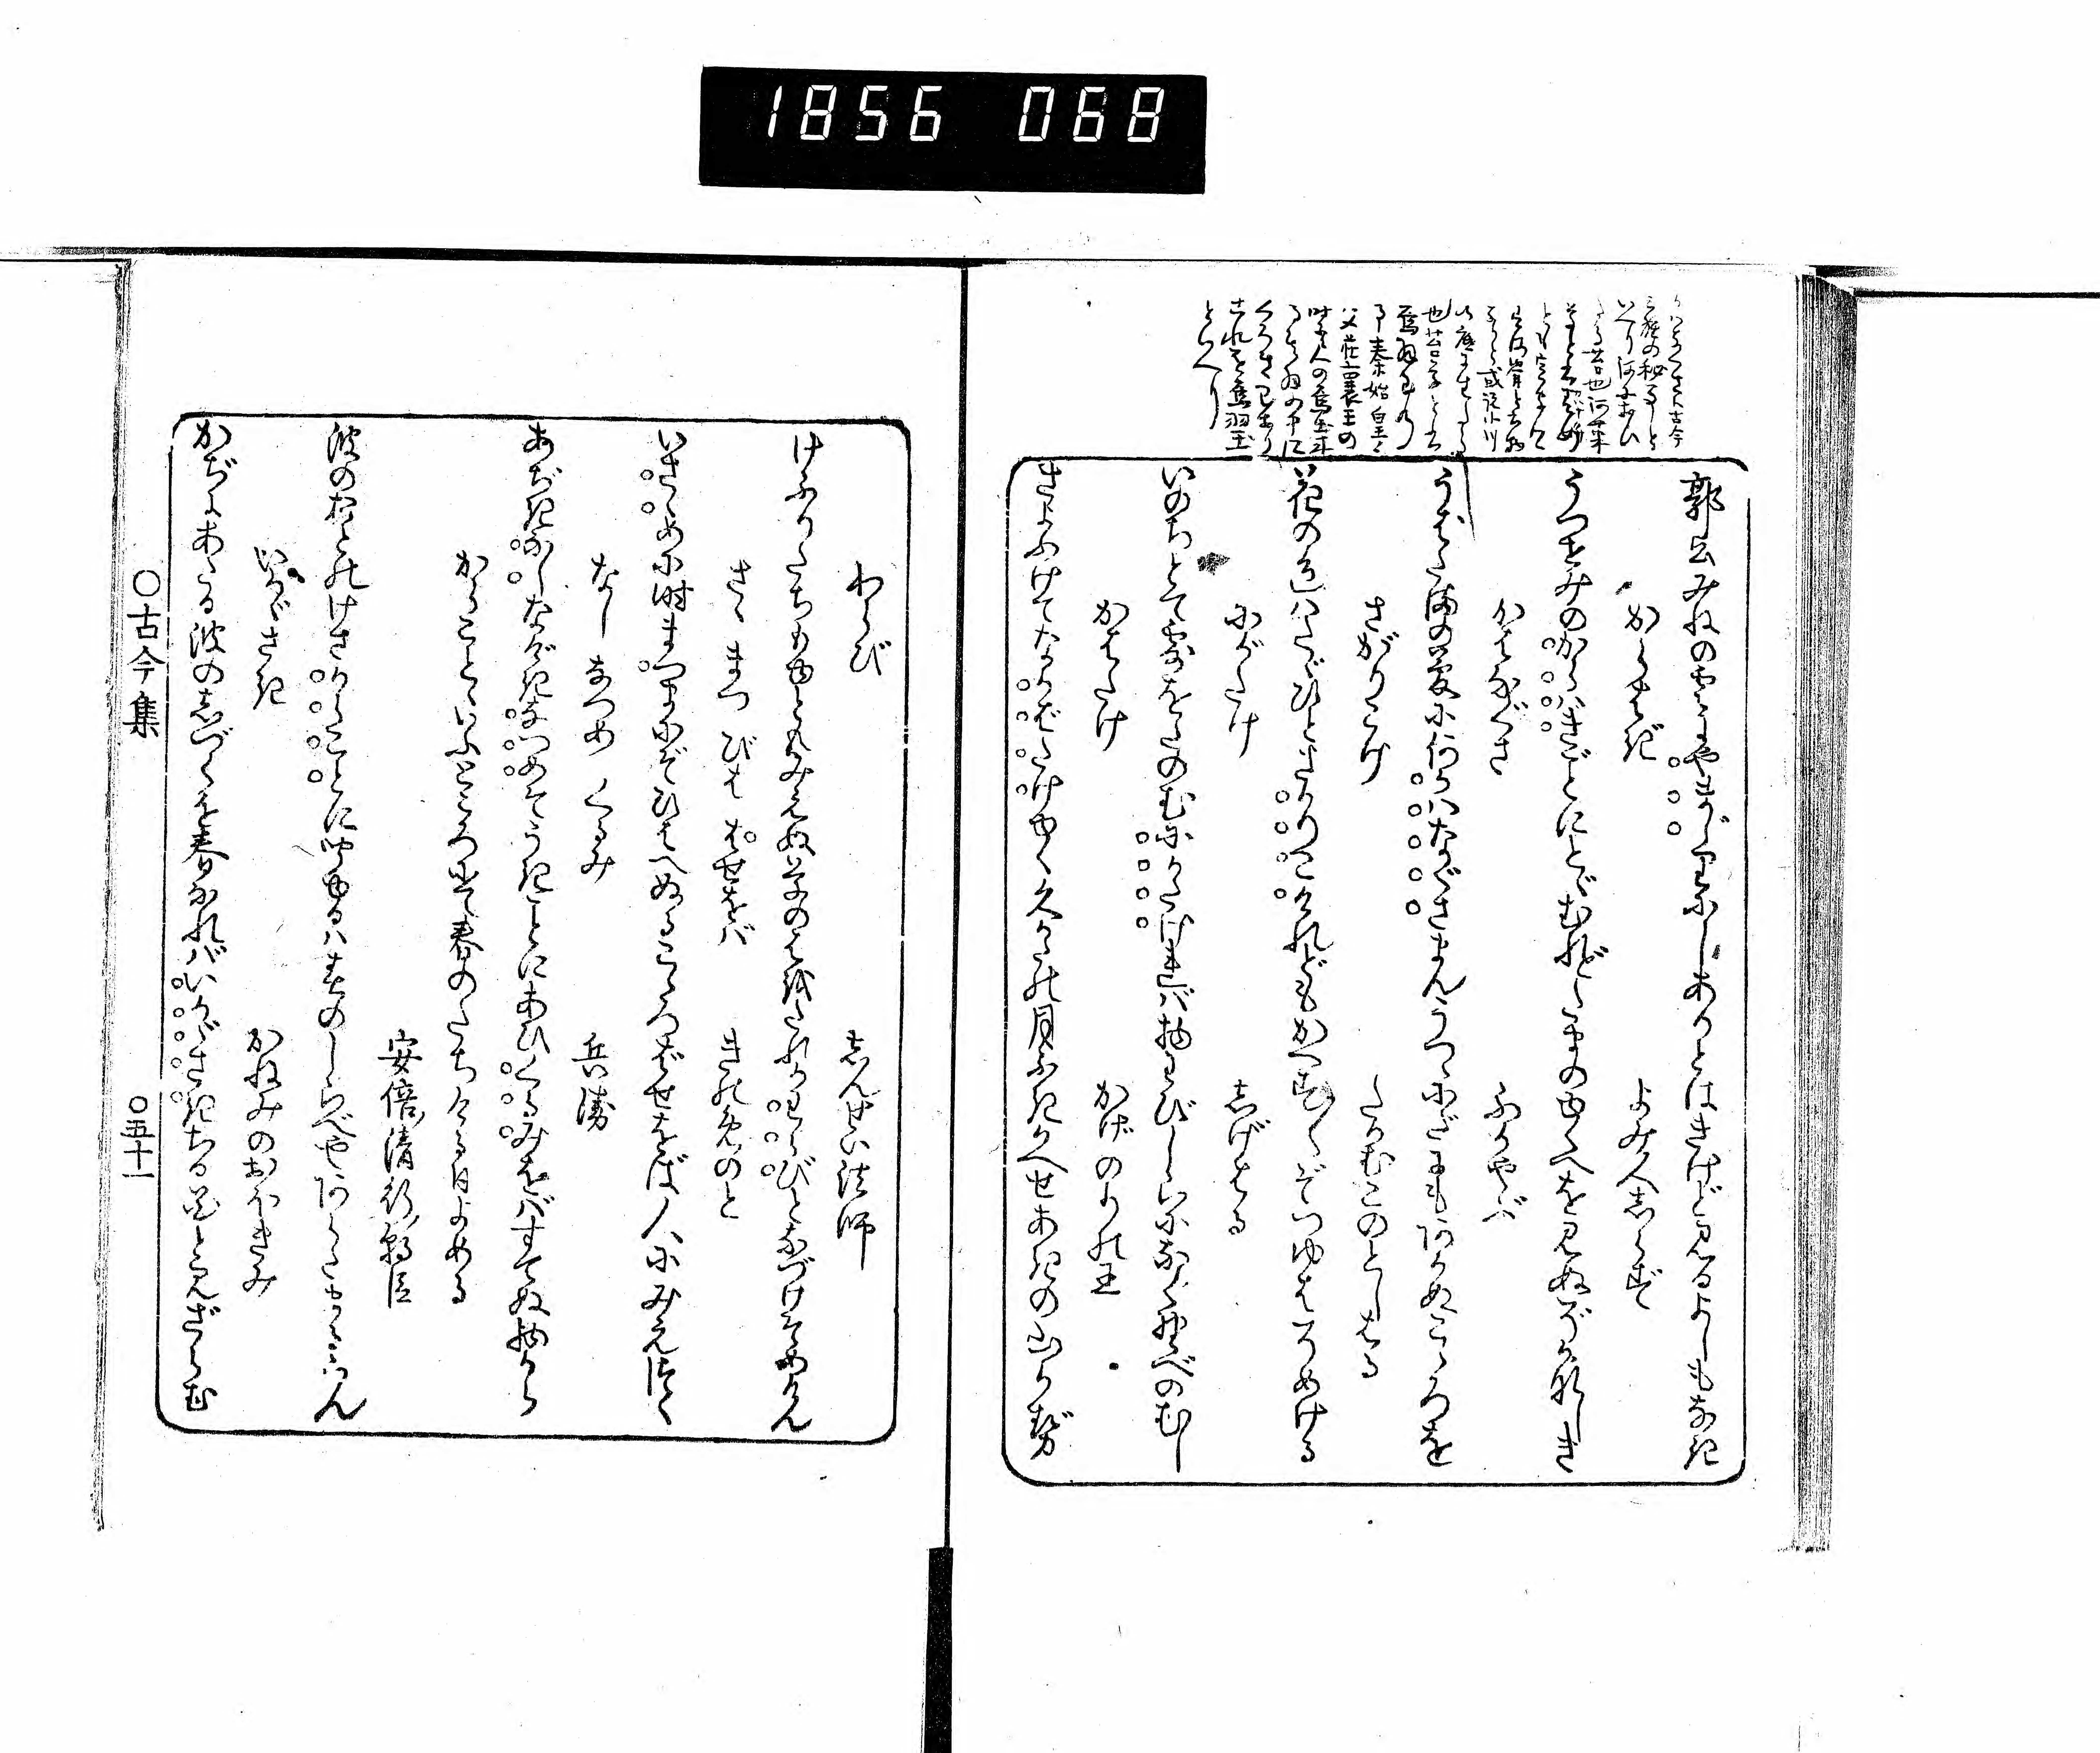 郭公みねの雲にやまじりにしありとはきけど見るよしもなき
からはぎ　よみ人しらず
うつせみのからハきごとにとゞむれどたまのゆくへを見ぬぞかなしき
かはなぐさ　ふかやぶ
うばたまの夢に何かハなぐさまんうつゝにだにもあかぬこゝろを
さがりごけ　たかむこのとしはる
花の色ハたゞひとさかりこけれどもかへす〴〵ぞつゆはそめける
にがたけ　しげはる
いのちとて露をたのむにかたければ物わびしらになく野べのむし
かはたけ　かげのりの王
さよふけてなかばたけゆく久かたの月ふきかへせあきの山かぜ
わらび　しんせい法師
けふりたちもゆともみえぬ草のはをたれかわらびとなづけそめけん
さゝ　まつ　びは　ばせをバ　きのめのと
いさゝめに時まつまにぞひはへぬるこゝろばせをば人にみえつゝ
なし　なつめ　くるみ　兵衛
あぢきなしなげきなつめそうきことにあひくるみをバすてぬ物から
からことゝいふところにて春のたちける日よめる
安倍清行朝臣
波のおとのけさからことにきこゆるハ春のしらべやあらたまるらん
いかゞさき　かねみのおほきみ
かぢにあたる波のしづくを春なれバいかゞさきちる花と見ざらむ
○古今集　○五十一
1856 068